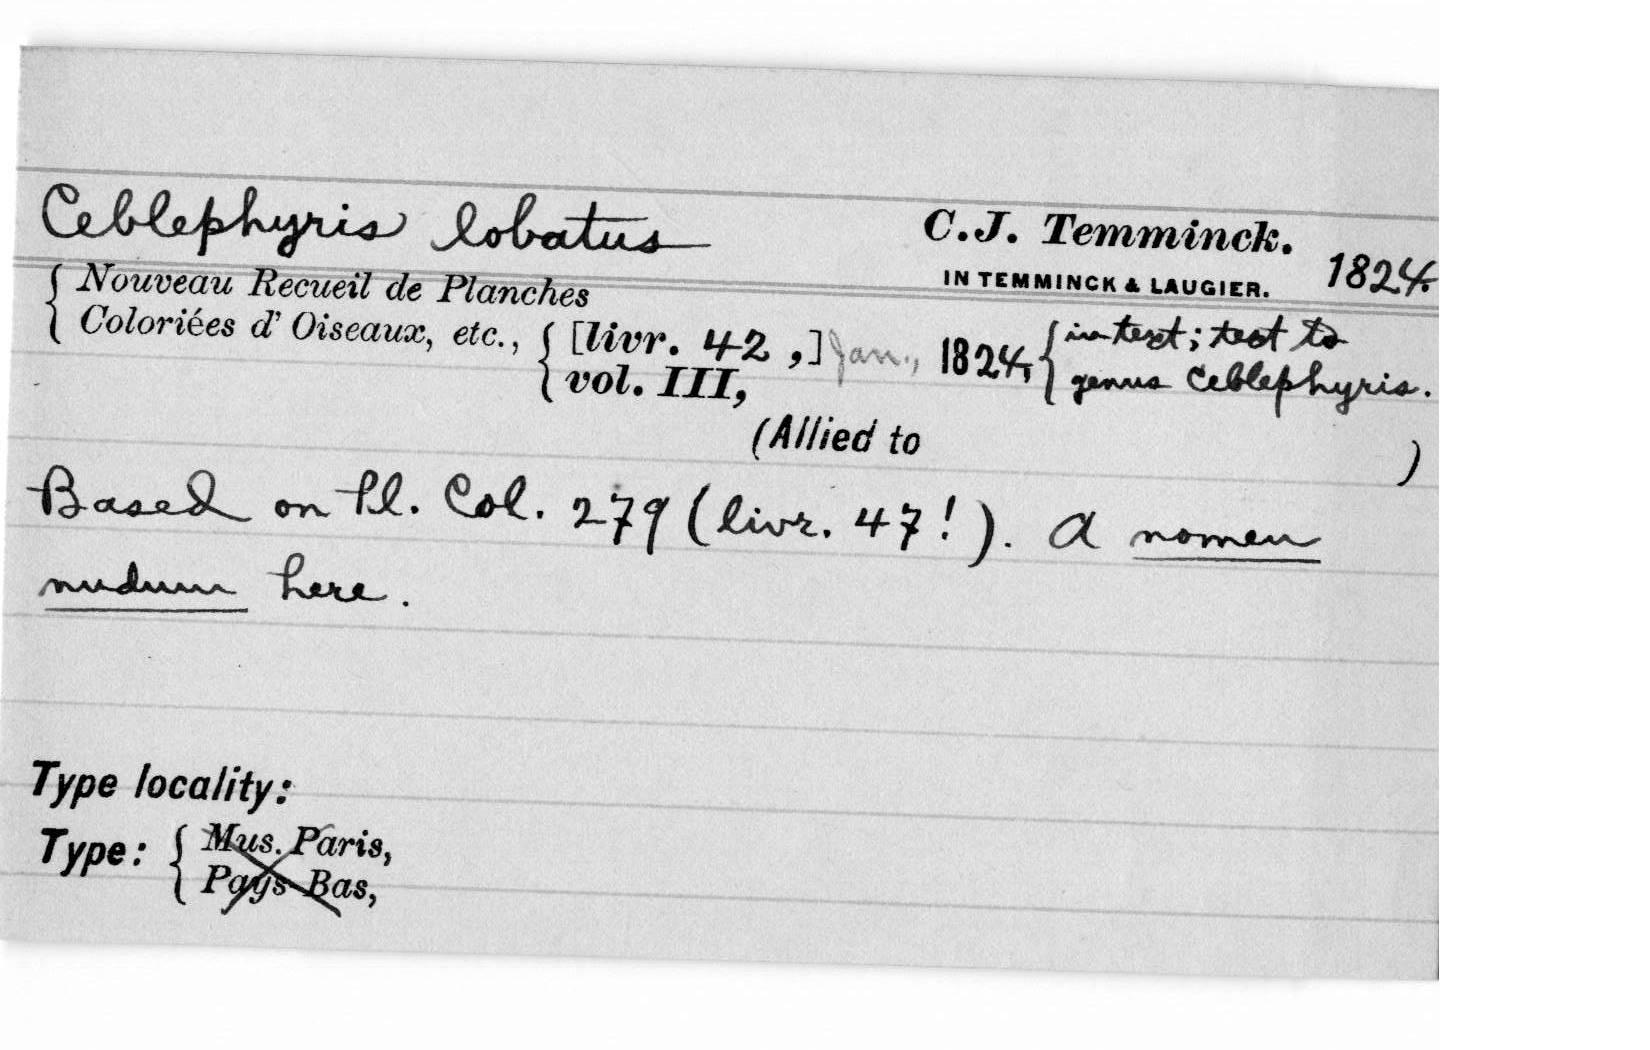 Ceblephyris lobatus C.J. Temminck.
IN TEMMINCK & LAUGIER. 1824.
Nouveau Recueil de Planches
Coloriées d' Oiseaux, etc., [livr. 42 ,] Jan., 1824, in text; text to
vol. III, genus Ceblephyris.
(Allied to )
Based on Pl. Col. 279 (livr. 47!). A nomen
nudum here.
Type locality:
Type: Mus. Paris,
Pays-Bas,